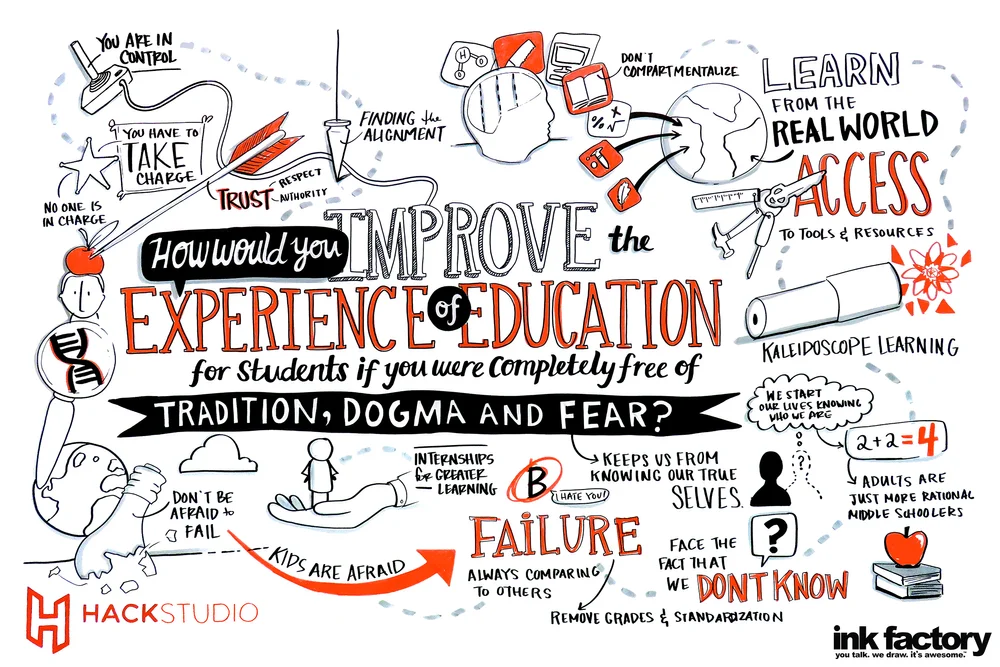 YOU ARE IN
CONTROL
YOU HAVE TO
TAKE
CHARGE
NO ONE IS
IN CHARGE
TRUST
RESPECT
AUTHORITY
FINDING the
ALIGNMENT
H
H
DON'T
COMPARTMENTALIZE
% X
√
LEARN
FROM THE
REAL WORLD
ACCESS
TO TOOLS & RESOURCES
How would you
IMPROVE the
EXPERIENCE of EDUCATION
for students if you were completely free of
TRADITION, DOGMA AND FEAR?
KALEIDOSCOPE LEARNING
DON'T BE
AFRAID to
FAIL
INTERNSHIPS
for GREATER
LEARNING
KIDS ARE AFRAID
B
I HATE YOU!
FAILURE
ALWAYS COMPARING
TO OTHERS
REMOVE GRADES & STANDARDIZATION
KEEPS US FROM
KNOWING OUR TRUE
SELVES.
WE START
OUR LIVES KNOWING
WHO WE ARE
?
2+2=4
ADULTS ARE
JUST MORE RATIONAL
MIDDLE SCHOOLERS
?
FACE THE
FACT THAT
WE DON'T KNOW
HACKSTUDIO
ink factory
you talk. we draw. it's awesome.